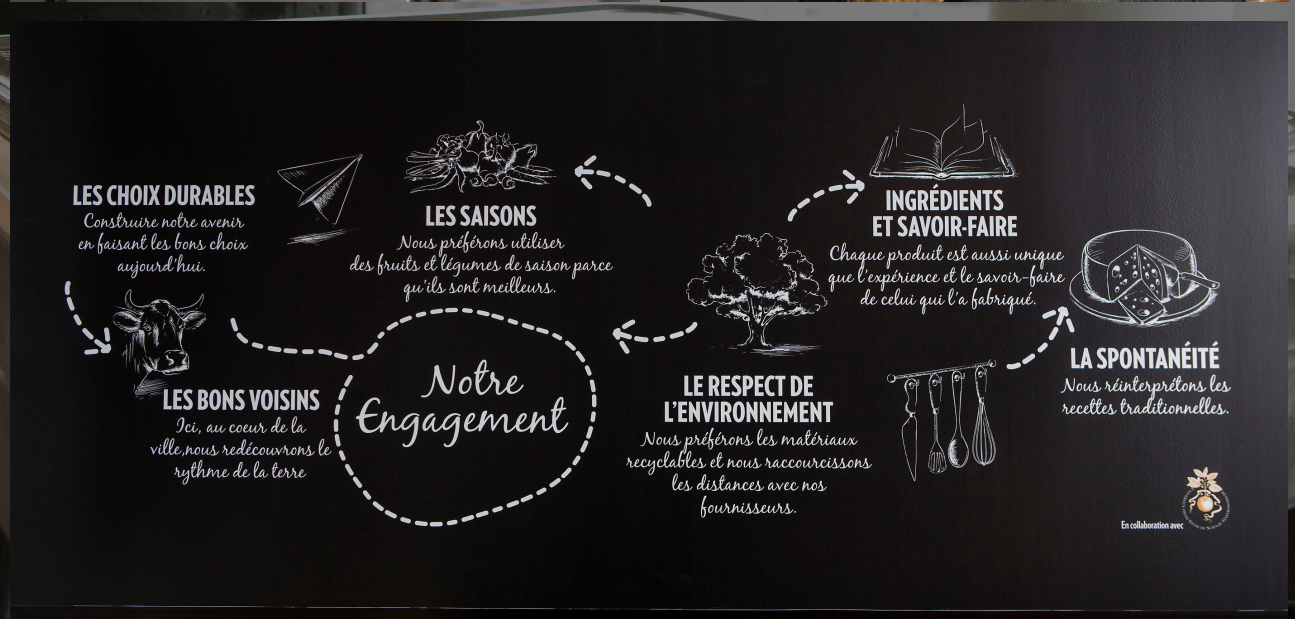 LES CHOIX DURABLES
Construire notre avenir
en faisant les bons choix
aujourd'hui.
LES SAISONS
Nous préférons utiliser
des fruits et légumes de saison parce
qu'ils sont meilleurs.
INGRÉDIENTS
ET SAVOIR-FAIRE
Chaque produit est aussi unique
que l'expérience et le savoir-faire
de celui qui l'a fabriqué.
LES BONS VOISINS
Ici, au coeur de la
ville,nous redécouvrons le
rythme de la terre
Notre
Engagement
LE RESPECT DE
L'ENVIRONNEMENT
Nous préférons les matériaux
recyclables et nous raccourcissons
les distances avec nos
fournisseurs.
LA SPONTANÉITÉ
Nous réinterprétons les
recettes traditionnelles.
En collaboration avec